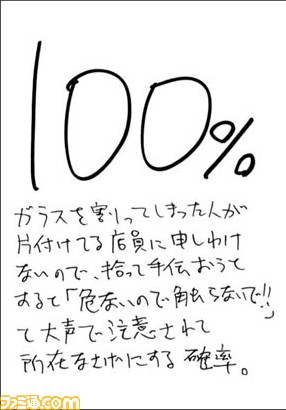 100%
ガラスを割ってしまった人が
片付けてる店員に申しわけ
ないので、拾って手伝おうと
すると「危ないので触らないで!!」
と大声で注意されて
所在なさげにする確率。
ファミ通.com